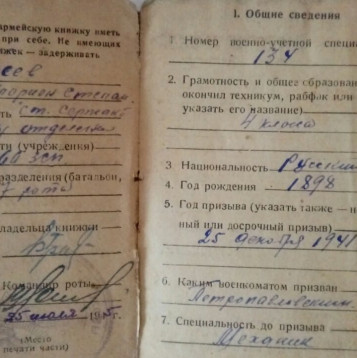 армейскую книжку иметь
при себе. Не имеющих
книжек — задерживать
ст. Сержант
отдельная
сти (учреждения)
зсп
разделения (батальон,
рота
владельца книжки
Командир роты
25 июля 194
(Место
печати части)
I. Общие сведения
1. Номер военно-учетной специ
134
2. Грамотность и общее образован
окончил техникум, рабфак или
указать его название)
4 класса
3. Национальность Русский
4. Год рождения 1898
5. Год призыва (указать также — н
ный или досрочный призыв)
25 декабря 1941
6. Каким военкоматом призван
Петропавловским
7. Специальность до призыва
Механик